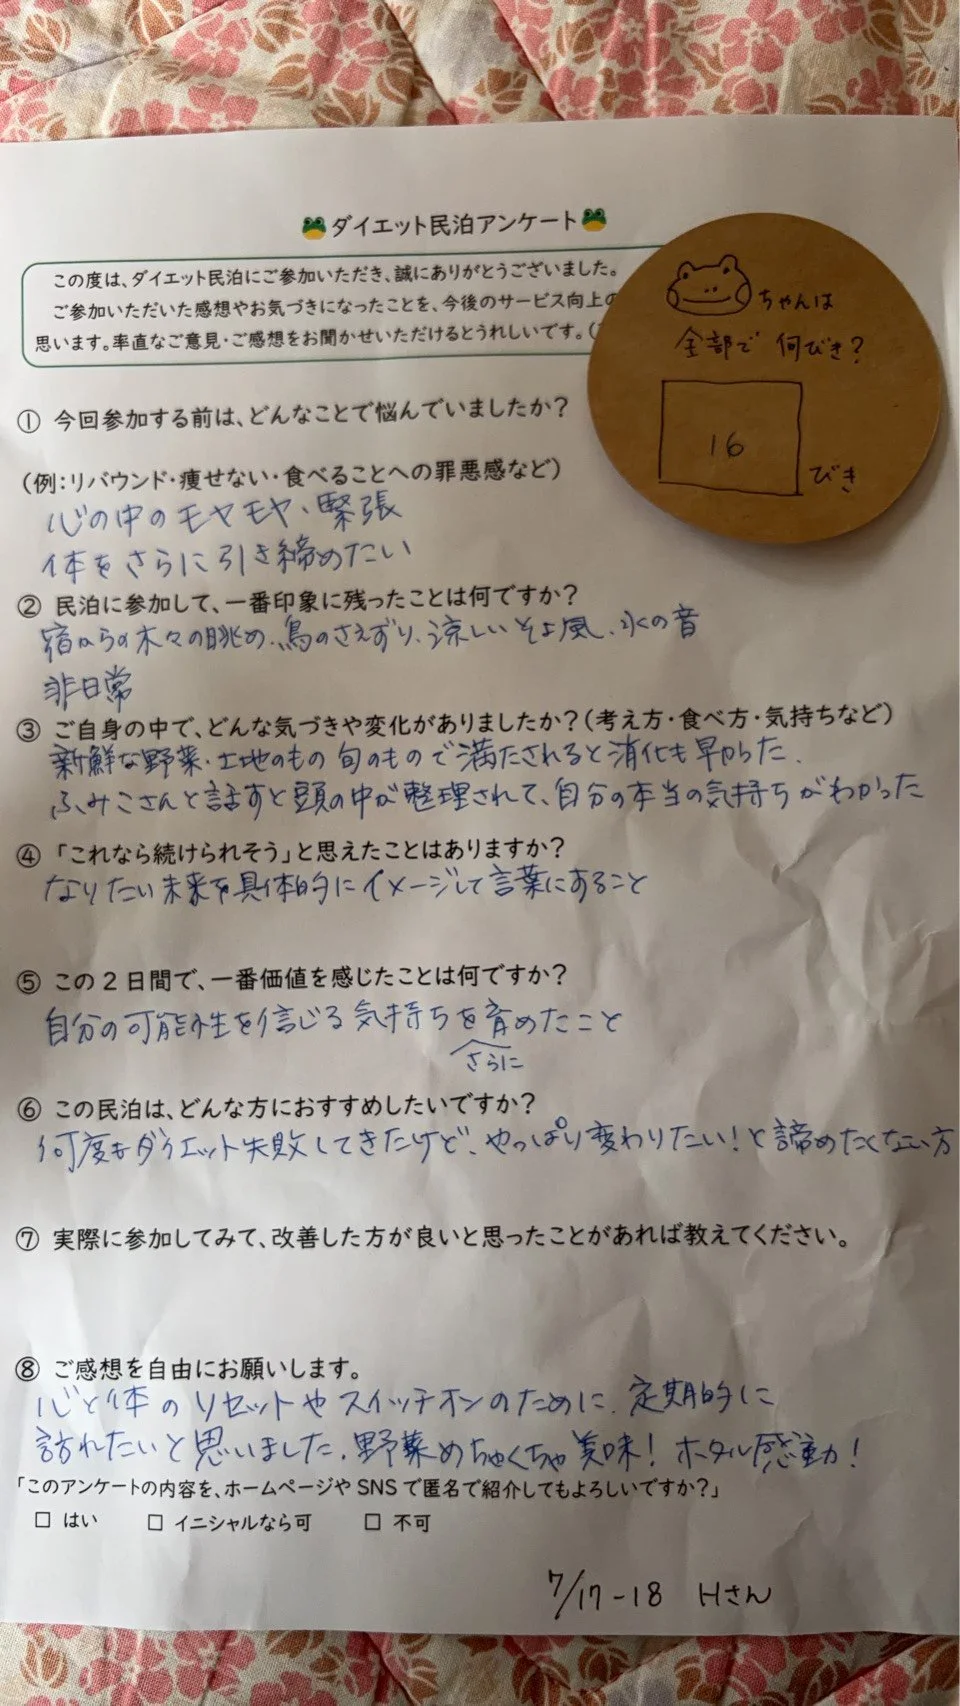 🐸ダイエット民泊アンケート🐸
この度は、ダイエット民泊にご参加いただき、誠にありがとうございました。
ご参加いただいた感想やお気づきになったことを、今後のサービス向上の
思います。率直なご意見・ご感想をお聞かせいただけるとうれしいです。(
ちゃんは
全部で 何びき?
16
びき
① 今回参加する前は、どんなことで悩んでいましたか?
(例:リバウンド・痩せない・食べることへの罪悪感など)
心の中のモヤモヤ、緊張
体をさらに引き締めたい
② 民泊に参加して、一番印象に残ったことは何ですか?
宿からの木々の眺め、鳥のさえずり、涼しいそよ風、水の音
非日常
③ ご自身の中で、どんな気づきや変化がありましたか?(考え方・食べ方・気持ちなど)
新鮮な野菜・土地のもの 旬のもので満たされると消化も早かった、
ふみこさんと話すと頭の中が整理されて、自分の本当の気持ちがわかった
④ 「これなら続けられそう」と思えたことはありますか?
なりたい未来を具体的にイメージして言葉にすること
⑤ この2日間で、一番価値を感じたことは何ですか?
自分の可能性を信じる気持ちを育めたこと
さらに
⑥ この民泊は、どんな方におすすめしたいですか?
何度もダイエット失敗してきたけど、やっぱり変わりたい!と諦めたくない方
⑦ 実際に参加してみて、改善した方が良いと思ったことがあれば教えてください。
⑧ ご感想を自由にお願いします。
心と体のリセットやスイッチオンのために、定期的に
訪れたいと思いました、野菜めちゃくちゃ美味!ホタル感動!
「このアンケートの内容を、ホームページやSNSで匿名で紹介してもよろしいですか?」
□ はい □ イニシャルなら可 □ 不可
7/17-18 Hさん